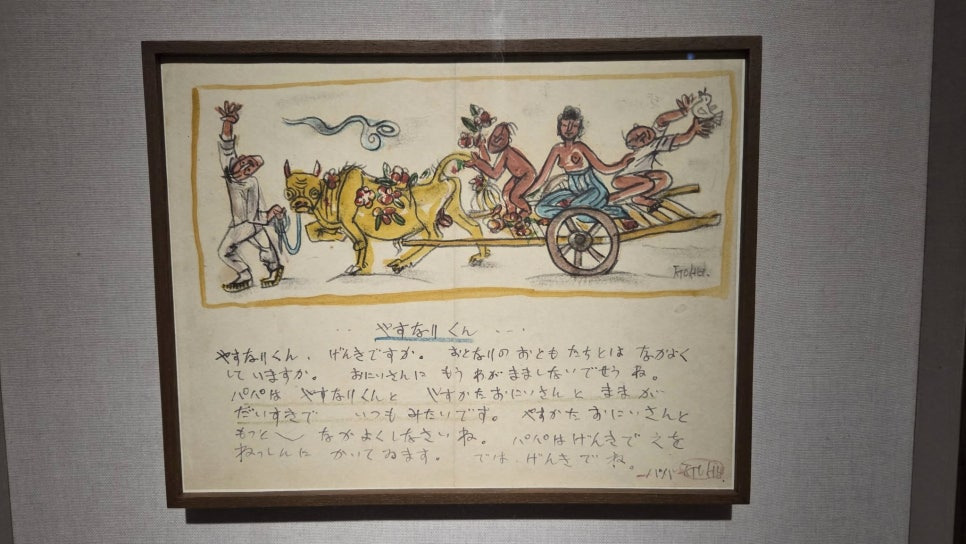 ㅈㅜㅇㅅㅓㅂ
やすなりくん
やすなりくん、げんきですか。 おとなりのおともだちとは なかよく
していますか。 おにいさんに もう わがままし​ないでせうね。
パパは やすなりくんと やすかたおにいさんと ままが
だいすきで いつも みたいです。 やすかたおにいさんと
もっと〳〵 なかよくしなさいね。 パパはげんきで ゑを
ねっしんに かいてゐます。 では、げんきでね。
パパ ㅈㅜㅇㅅㅓㅂ